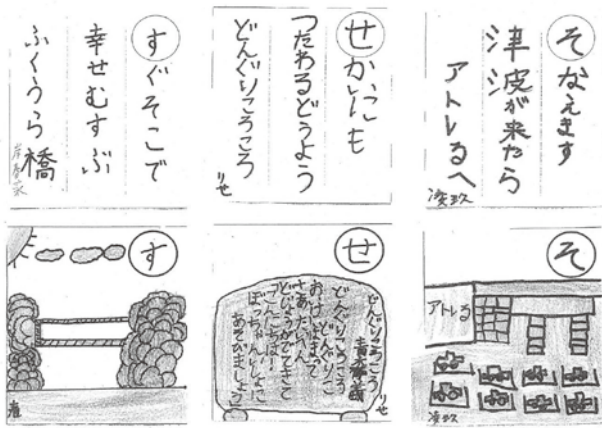 そなえます
津波が来たら
アトレるへ
せかいにも
つたわるどうよう
どんぐりころころ
りせ
すぐそこで
幸せむすぶ
ふくうら橋
そ
アトレる
せ
どんぐりころころ
青木存義
りせ
どんぐりころころ
どんぐりこ
おいけにはまって
さあたいへん
どじょうがでてきて
こんにちは
ぼっちゃんいっしょに
あそびましょう
す